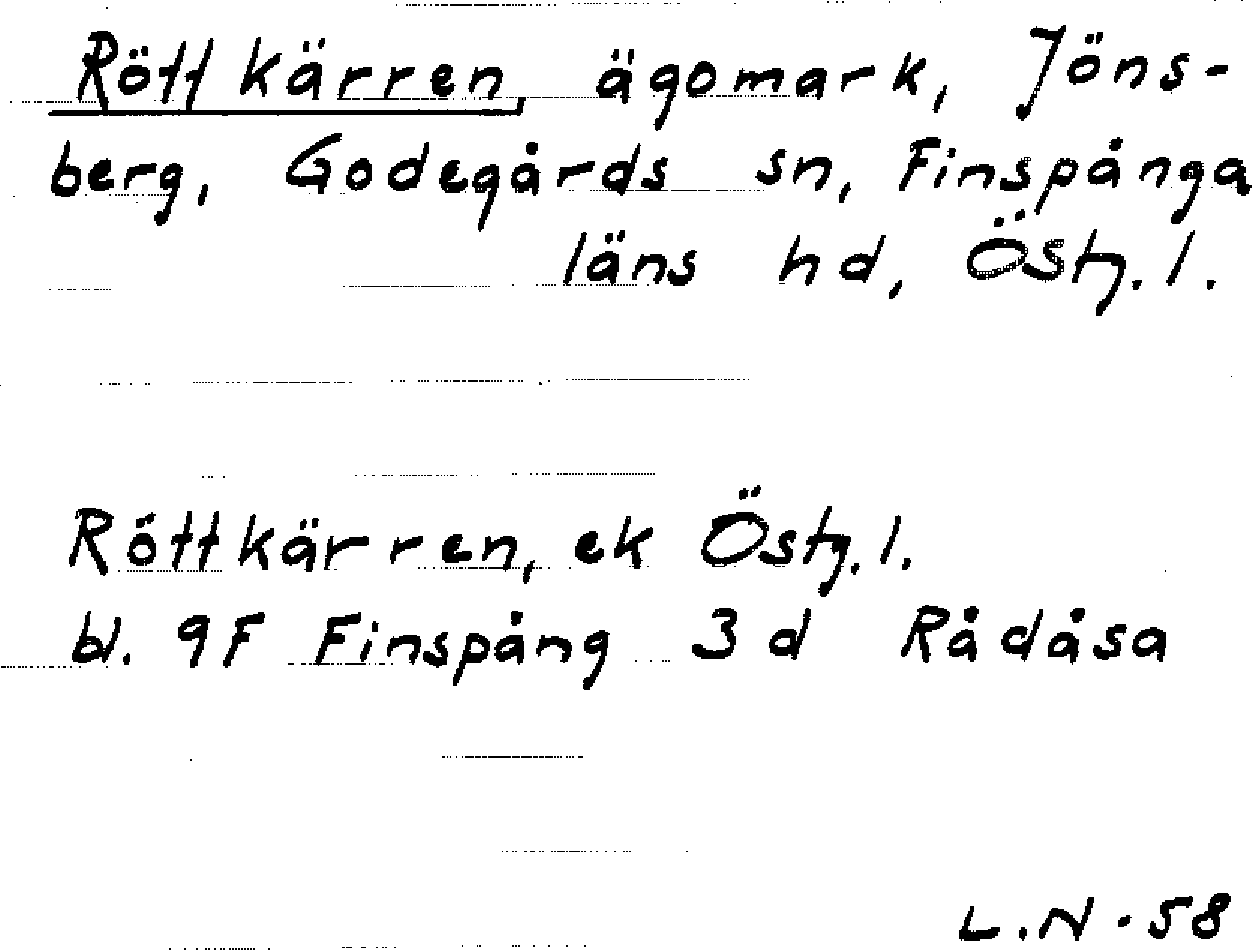 Röttkärren, ägomark, Jöns-
berg, Godegårds sn, Finspånga
läns hd, Östg. l.
Röttkärren, ek Östg. l.
bl. 9F Finspång 3 d Rådåsa
L.N. 58